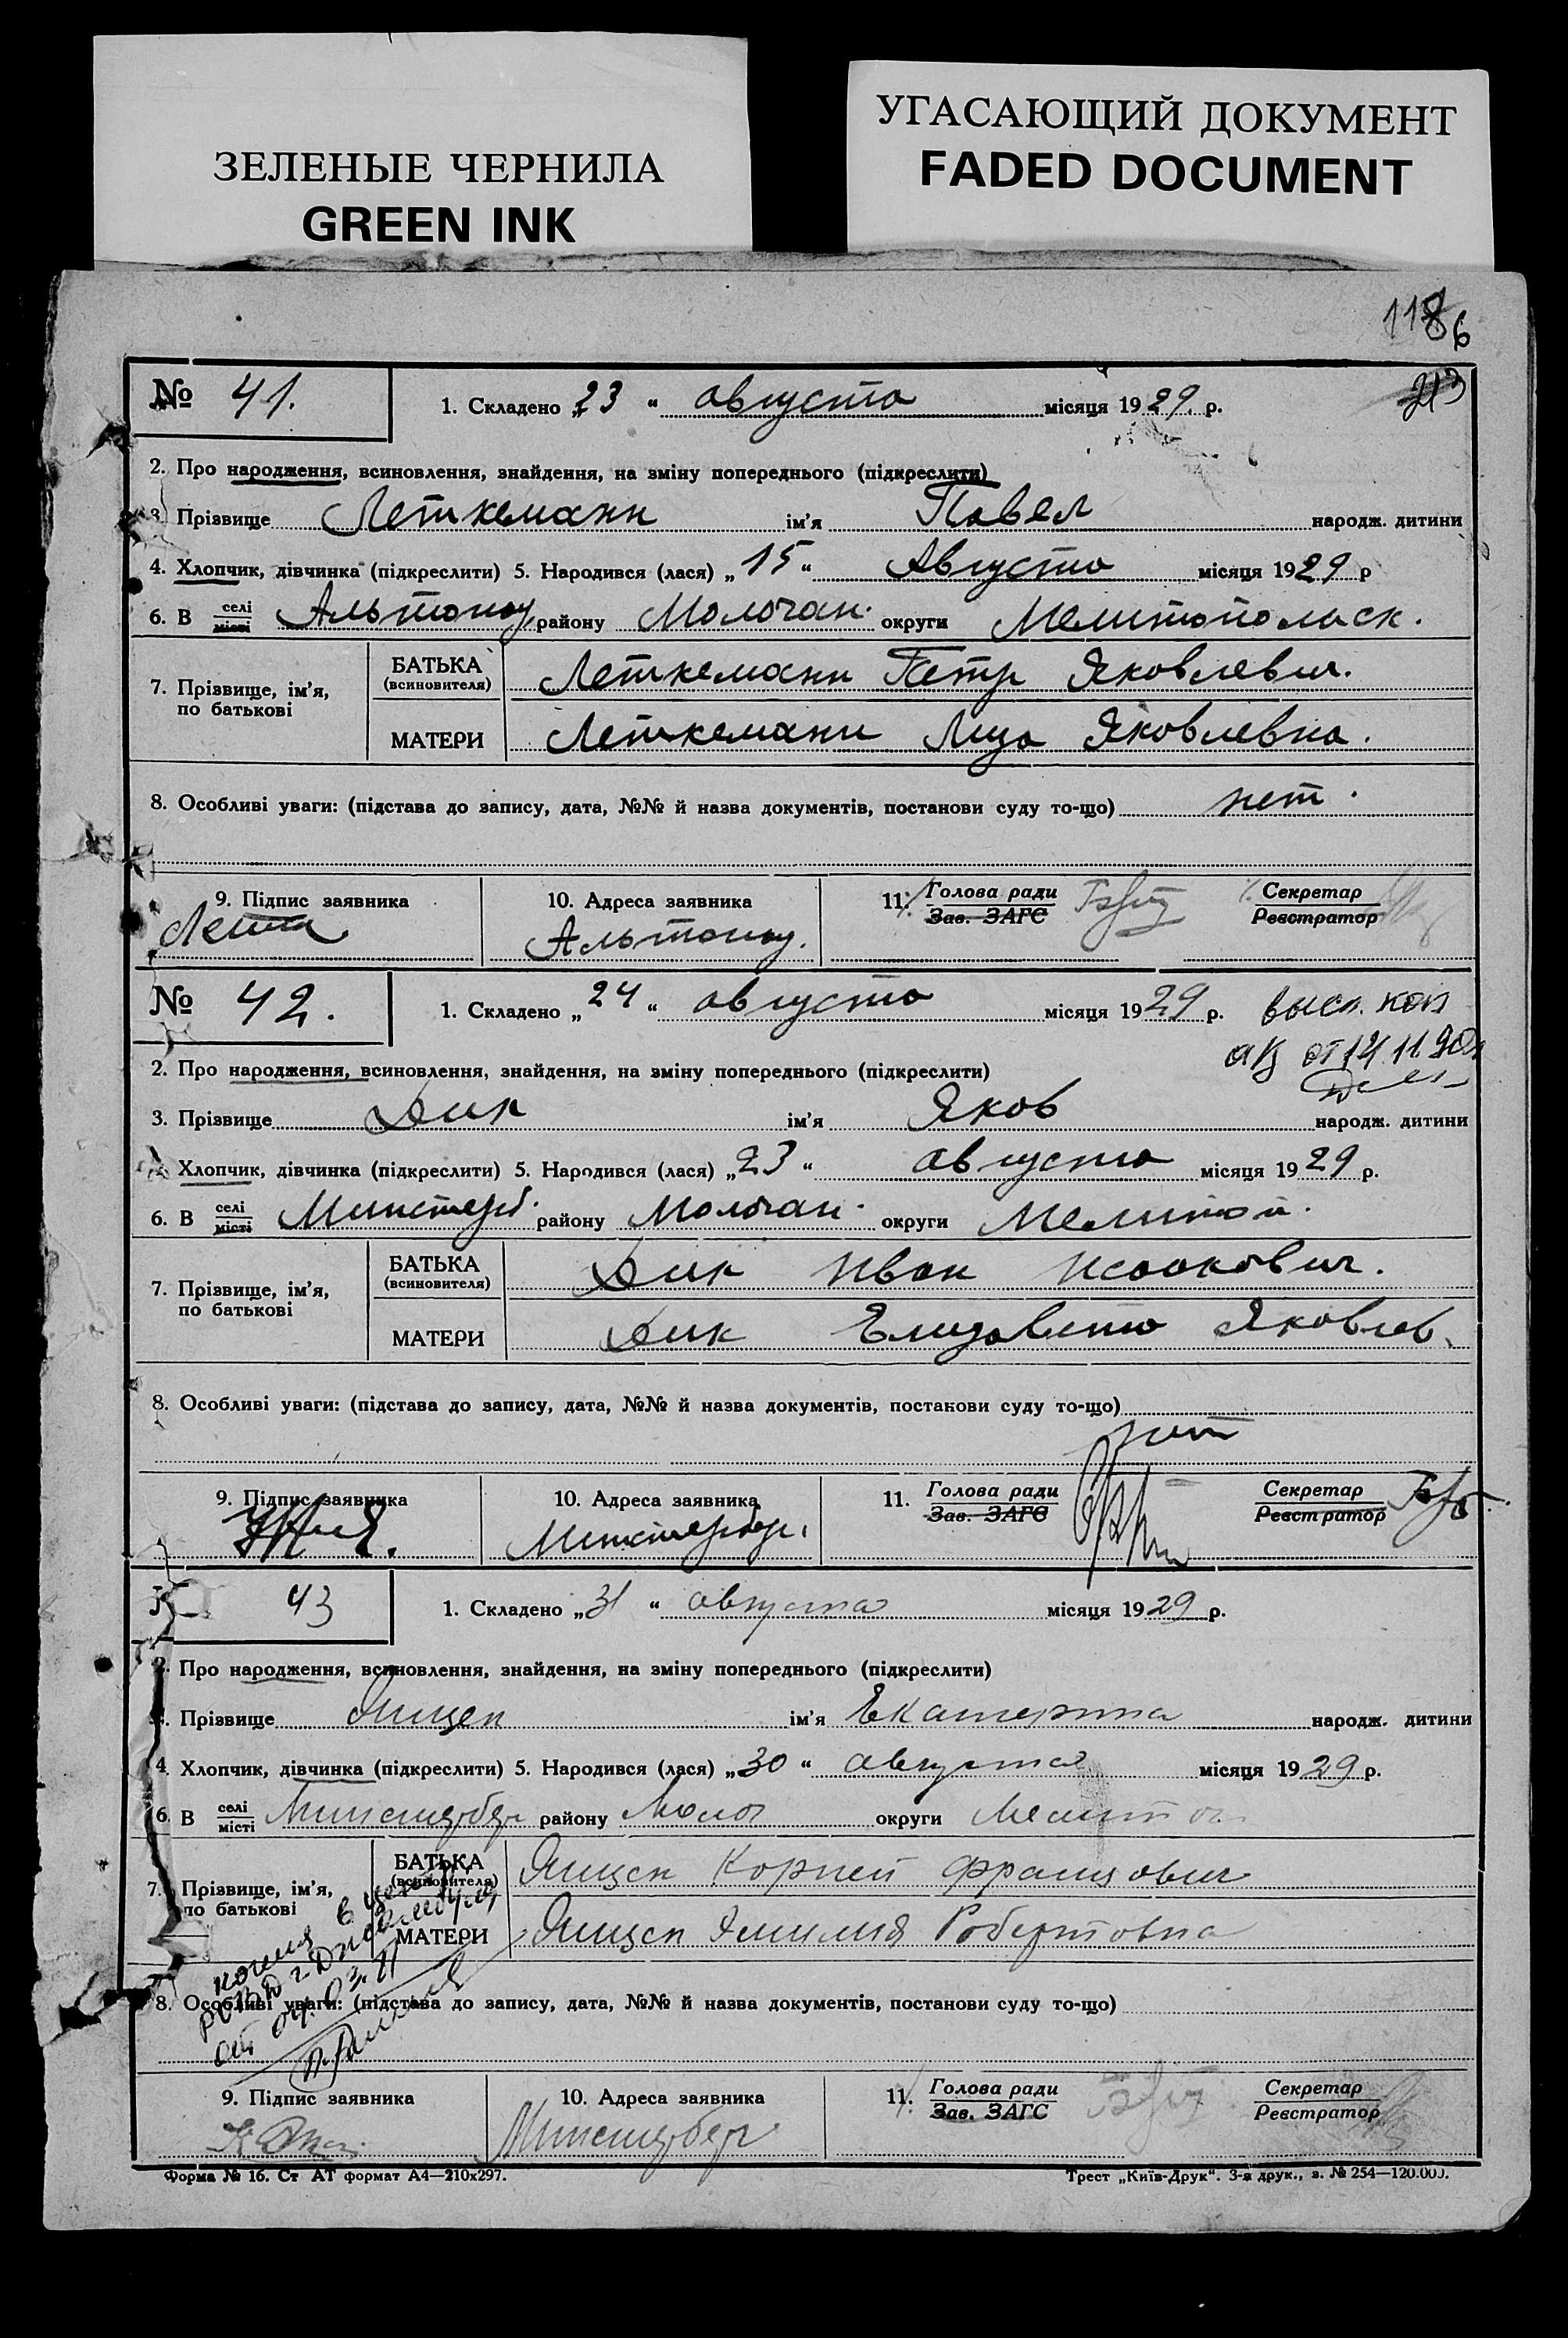 ЗЕЛЕНЫЕ ЧЕРНИЛА
GREEN INK
УГАСАЮЩИЙ ДОКУМЕНТ
FADED DOCUMENT
№ 41. 1. Складено „23 “ августа місяця 1929. р.
2. Про народження, всиновлення, знайдення, на зміну попереднього (підкреслити)
3. Прізвище Леткеманн ім’я Павел народж. дитини
4. Хлопчик, дівчинка (підкреслити) 5. Народився (лася) „15“ Августа місяця 1929 р
6. В селі місті Альтонау району Молочан. округи Мелитопольск.
7. Прізвище, ім’я, по батькові
БАТЬКА (всиновителя) Леткеманн Петр Яковлевич.
МАТЕРИ Леткеманн Лиза Яковлевна.
8. Особливі уваги: (підстава до запису, дата, №№ й назва документів, постанови суду то-що) нет.
9. Підпис заявника 10. Адреса заявника 11. Голова ради Зав. ЗАГС Секретар Реєстратор
Альтонау.
№ 42. 1. Складено „24 “ августа місяця 1929 р. высл. коп
2. Про народження, всиновлення, знайдення, на зміну попереднього (підкреслити)
3. Прізвище Дик ім’я Яков народж. дитини
Хлопчик, дівчинка (підкреслити) 5. Народився (лася) „23 “ августа місяця 1929 р.
6. В селі місті Минстерб. району Молочан. округи Мелитоп.
7. Прізвище, ім’я, по батькові
БАТЬКА (всиновителя) Дик Иван Исаакович.
МАТЕРИ Дик Елизавета Яковлев.
8. Особливі уваги: (підстава до запису, дата, №№ й назва документів, постанови суду то-що)
нет
9. Підпис заявника 10. Адреса заявника 11. Голова ради Зав. ЗАГС Секретар Реєстратор
Минстерберг.
43 1. Складено „31 “ августа місяця 1929 р.
2. Про народження, всиновлення, знайдення, на зміну попереднього (підкреслити)
Прізвище Янцен ім’я Екатерина народж. дитини
4. Хлопчик, дівчинка (підкреслити) 5. Народився (лася) „30 “ августа місяця 1929 р.
6. В селі місті Минстерберг району Молоч округи Мелитоп
7. Прізвище, ім’я, по батькові
БАТЬКА (всиновителя) Янцен Корней Францович
МАТЕРИ Янцен Эмилия Робертовна
8. Особливі уваги: (підстава до запису, дата, №№ й назва документів, постанови суду то-що)
9. Підпис заявника 10. Адреса заявника 11. Голова ради Зав. ЗАГС Секретар Реєстратор
Минстерберг
Форма № 16. Ст АТ формат А4—210х297. Трест „Київ-Друк“. 3-я друк., з. № 254—120.000.